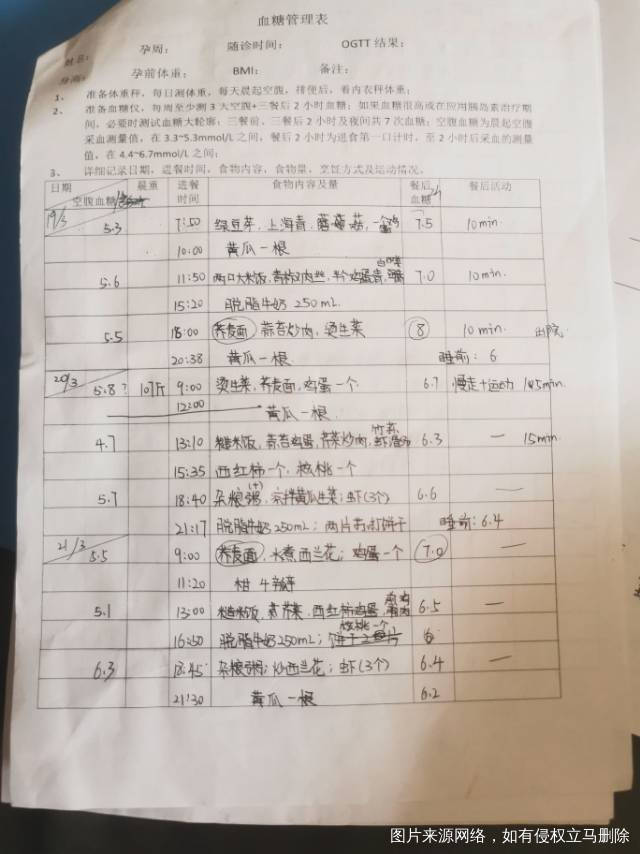 血糖管理表
姓名： 孕周： 随诊时间： OGTT 结果：
身高： 孕前体重： BMI： 备注：
1、 准备体重秤，每日测体重，每天晨起空腹，排便后，着内衣秤体重；
2、 准备血糖仪，每周至少测 3 大空腹+三餐后 2 小时血糖；如果血糖很高或在应用胰岛素治疗期
间，必要时测试血糖大轮廓：三餐前、三餐后 2 小时及夜间共 7 次血糖；空腹血糖为晨起空腹
采血测量值，在 3.3~5.3mmol/L 之间，餐后 2 小时为进食第一口计时，至 2 小时后采血的测量
值，在 4.4~6.7mmol/L 之间；
3、 详细记录日期，进餐时间，食物内容，食物量，烹饪方式及运动情况。
日期 空腹血糖 晨重 进餐时间 食物内容及量 餐后血糖 2h 餐后活动
19/3 5.3 7:50 绿豆芽，上海青，蘑菇，一个鸡蛋 7.5 10min
10:00 黄瓜一根
5.6 11:50 两口大米饭，青椒肉丝，半个鸡蛋羹， 7.0 10min.
15:20 脱脂牛奶 250mL
5.5 18:00 荞麦面 蒜苔炒肉，烫生菜 8 10min 出院
20:38 黄瓜一根 睡前：6
20/3 5.8? 107斤 9:00 烫生菜，荞麦面，鸡蛋一个. 6.7 慢走+运动 15min.
12:00 黄瓜一根.
4.7 13:10 糙米饭，蒜苔鸡蛋，芹菜炒肉， 6.3 — 15min
15:35 西红柿一个，核桃一个
5.7 18:40 杂粮粥(+)，凉拌黄瓜生菜；虾(3个) 6.6 —
21:17 脱脂牛奶250mL；两片苏打饼干 睡前：6.4
21/3 5.5 9:00 荞麦面，水煮西兰花；鸡蛋一个 7.0 —
11:20 柑 4瓣
5.1 13:00 糙米饭，西红柿鸡蛋， 6.5 —
16:50 脱脂牛奶250mL；核桃一个 6
6.3 18:45 杂粮粥；炒西兰花；虾(3个) 6.4 —
21:30 黄瓜一根 6.2
图片来源网络，如有侵权立马删除